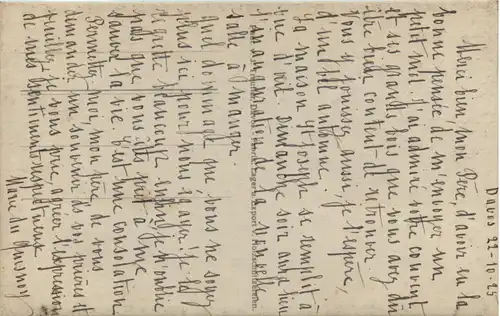 Davos 22-10-25
Merci bien, mon Père, d'avoir eu la
bonne pensée de m'envoyer un
petit mot. J'ai admiré votre couvent
et ses grands bois que vous avez dû
être bien content de retrouver.
Vous y jouissez aussi, je l'espère,
d'un bel automne.
La maison St Joseph se remplit à
vue d'œil. Dimanche soir aura lieu
l'inauguration de la nouvelle
salle à manger.
Quel dommage que vous ne soyez
plus ici pour nous égayer. Je
regrette beaucoup
que vous
sauvé la vie. C'est une consolation
Permettez moi, mon père, de vous
demander un souvenir ds vos prières et
veuillez je vous prie, agréer l'expression
de mes sentiments respectueux
Marie du